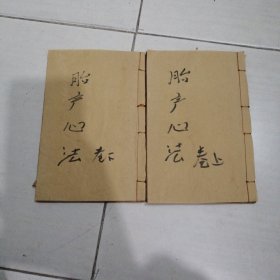 胎产心法 卷上
胎产心法 卷下